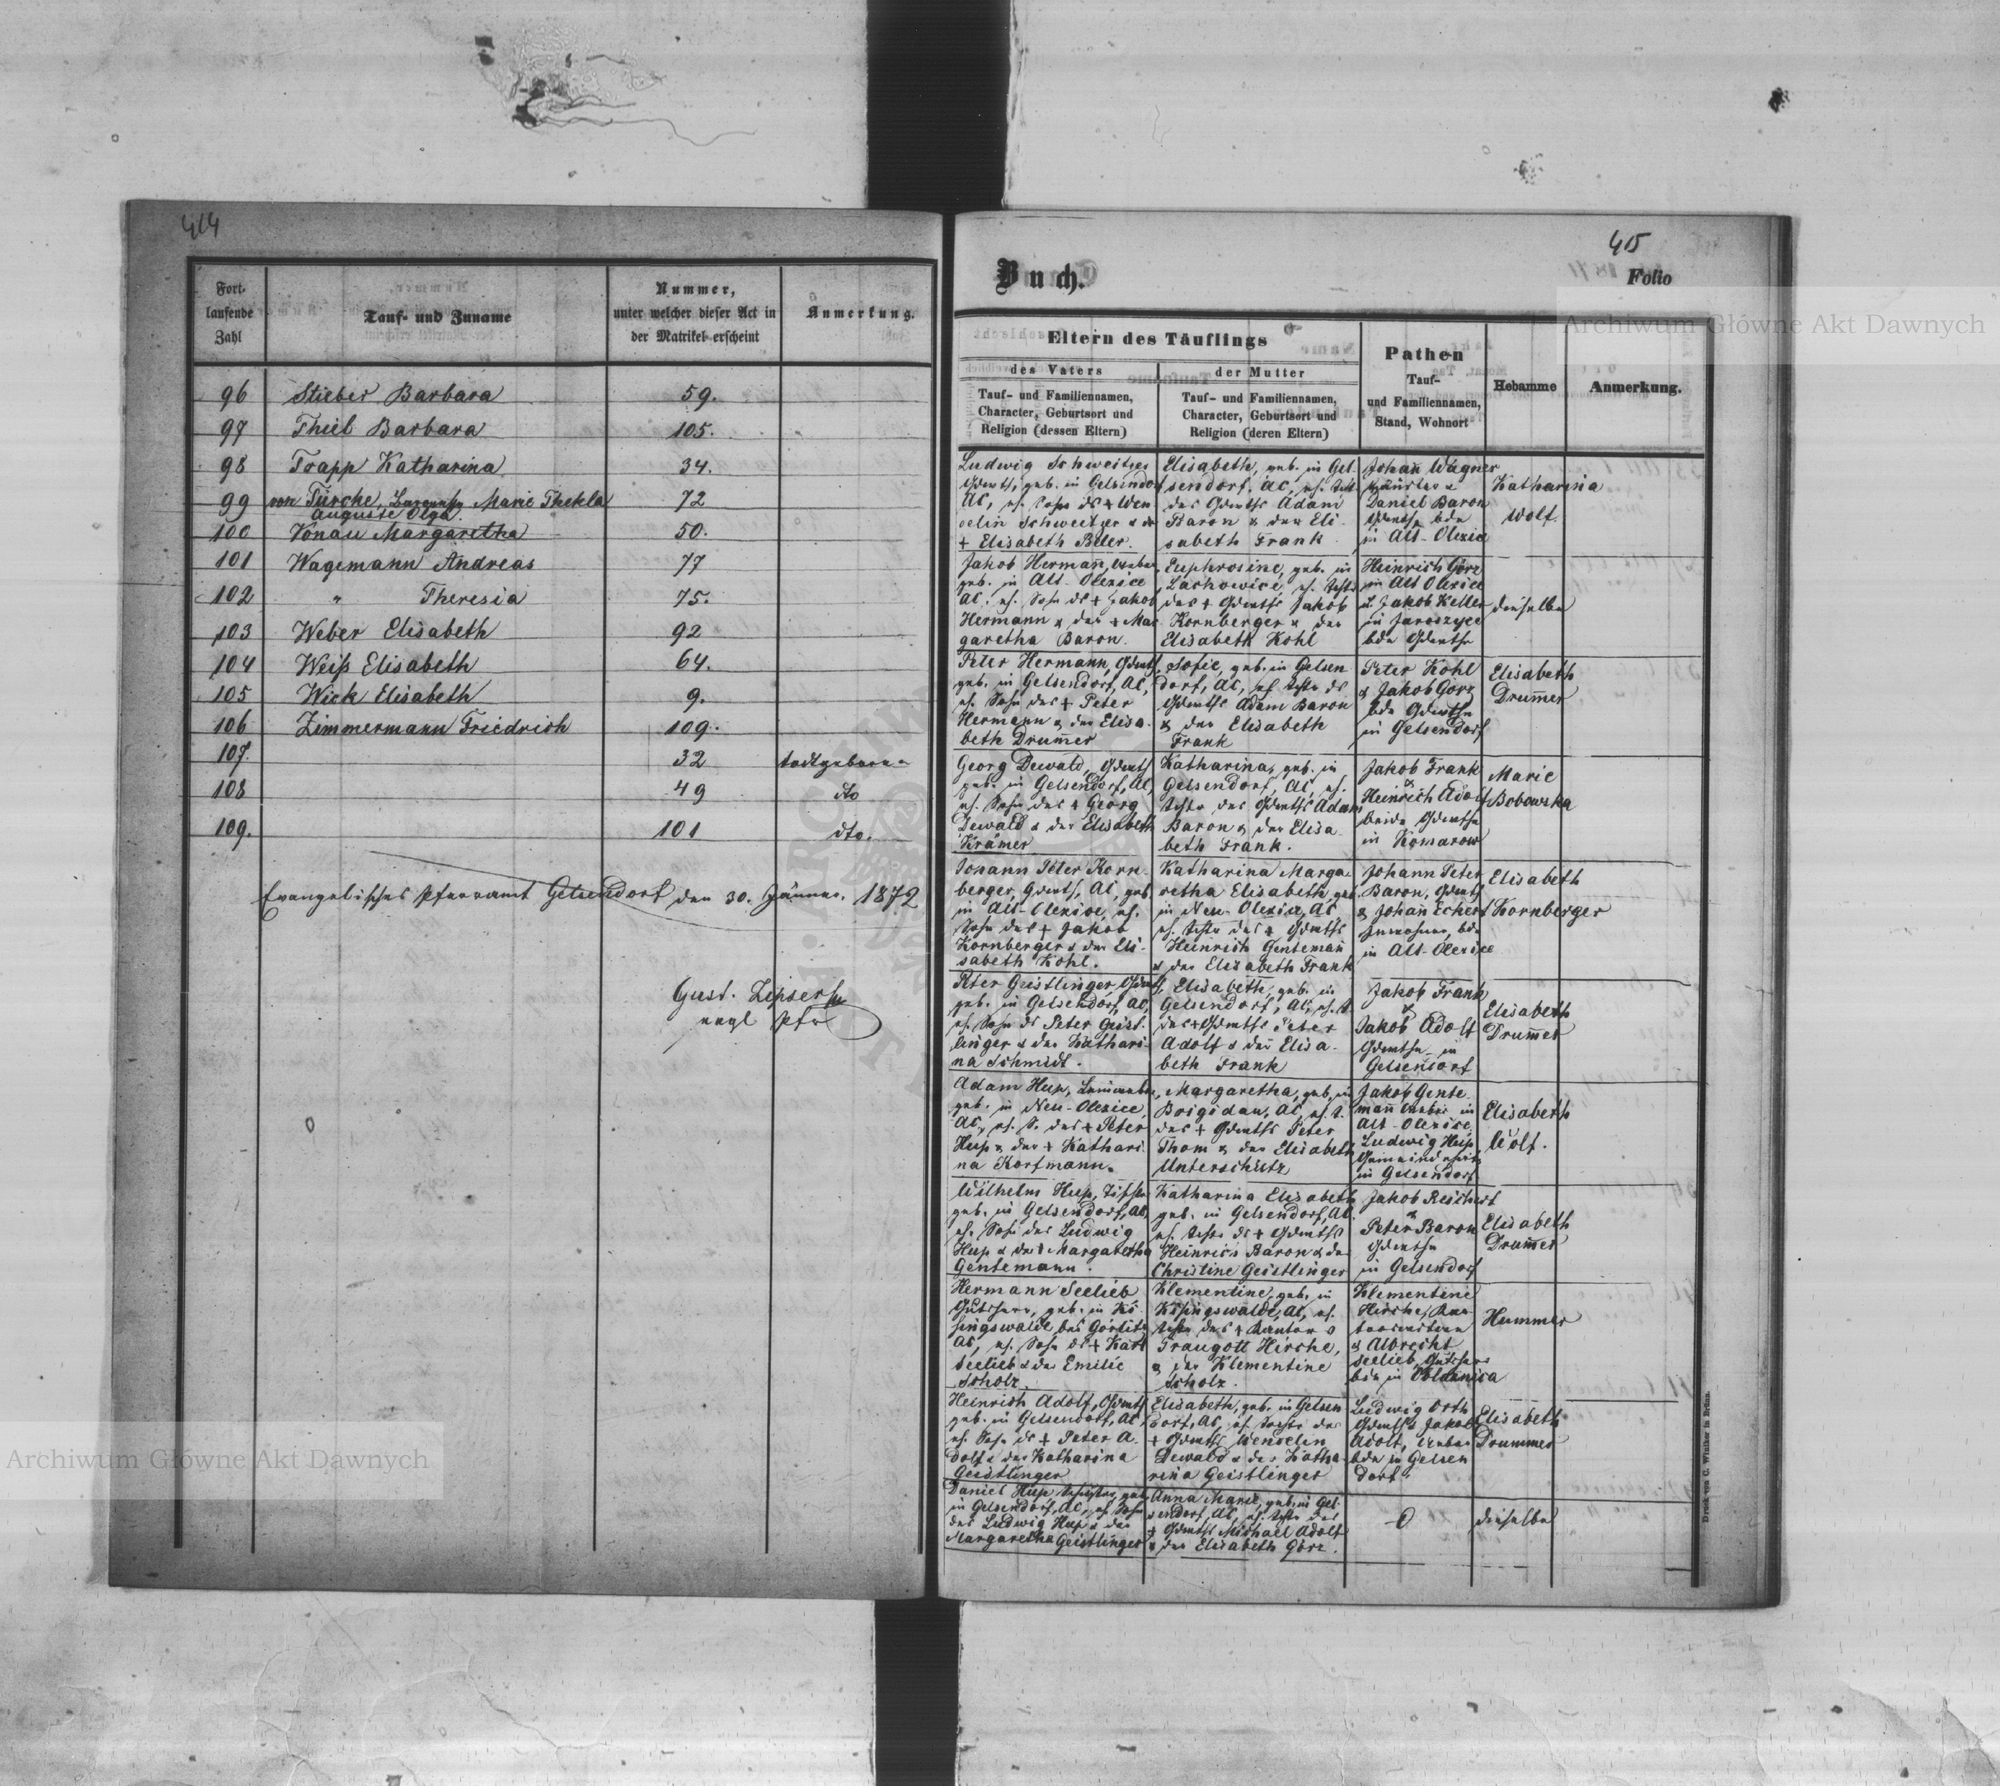 414
Fort-
laufende
Zahl
Tauf- und Zuname
Nummer,
unter welcher dieser Act in
der Matrikel erscheint
Anmerkung.
96 Stieber Barbara 59.
97 Thiel Barbara 105.
98 Trapp Katharina 34.
99 von Türcke, Marie Thekla 72
Auguste Olga.
100 Vonau Margaretha 50.
101 Wagemann Andreas 77
102 " Theresia 75.
103 Weber Elisabeth 92
104 Weiß Elisabeth 64.
105 Wick Elisabeth 9.
106 Zimmermann Friedrich 109.
107. 32 todtgeboren
108 49 dto
109. 101 dto.
Evangelisches Pfarramt Gelsendorf den 30. Jänner. 1872
Gust. Lipser
evgl Pfr
415
Buch.
Folio
Eltern des Täuflings
des Vaters
Tauf- und Familiennamen,
Character, Geburtsort und
Religion (dessen Eltern)
der Mutter
Tauf- und Familiennamen,
Character, Geburtsort und
Religion (deren Eltern)
Pathen
Tauf-
und Familiennamen,
Stand, Wohnort
Hebamme
Anmerkung.
Ludwig Schweitzer
geb. in Gelsendorf
AC, eh. Sohn ds + Wen
delin Schweitzer & dr
+ Elisabeth Beler.
Elisabeth, geb. in Gel-
sendorf, AC, eh.
des Adam
Baron & der Eli-
sabeth Frank
Johañ Wagner
&
Daniel Baron
bde
in Alt-Olexice
Katharina
Wolf.
Jakob Herman, Weber
geb. in Alt-Olexice
AC. eh. Sohn ds + Jakob
Hermann & der + Mar
garetha Baron.
Euphrosine, geb. in
Lachowice, eh.
des + Jakob
Kornberger & der
Elisabeth Kohl
Heinrich Görz
in Alt Olexice
& Jakob Keller
in Jaroszyce
bde
dieselbe
Peter Hermann,
geb. in Gelsendorf, AC,
eh. Sohn des + Peter
Hermann & der Elisa-
beth Drum̄er
Sofie, geb. in Gelsen
dorf, AC, eh ds
Adam Baron
& der Elisabeth
Frank
Peter Kohl
& Jakob Görz
bde
in Gelsendorf
Elisabeth
Drum̄er
Georg Dewald,
geb. in Gelsendorf, AC,
eh. Sohn des + Georg
Dewald & der Elisabeth
Krämer
Katharina, geb. in
Gelsendorf, AC, eh.
des Adam
Baron & der Elisa
beth Frank.
Jakob Frank
&
Heinrich Adolf
beide
in Komarow
Marie
Bobowska
Johann Peter Korn-
berger, AC, geb.
in Alt-Olexice, eh.
Sohn des + Jakob
Kornberger & der Eli-
sabeth Kohl.
Katharina Marga
retha Elisabeth geb
in Neu-Olexice, AC,
eh. des +
Heinrich Gentemañ
& der Elisabeth Frank
Johann Peter
Baron,
& Johañ Eckert
bde
in Alt-Olexice
Elisabeth
Kornberger
Peter Geistlinger,
geb. in Gelsendorf, AC,
eh. Sohn ds Peter Geist-
linger & der Kathari-
na Schmidt.
Elisabeth, geb. in
Gelsendorf, AC, eh. T.
des + Peter
Adolf & der Elisa-
beth Frank
Jakob Frank
&
Jakob Adolf
in
Gelsendorf
Elisabeth
Drum̄er
Adam Hup,
geb. in Neu-Olexice,
AC, eh. S. des + Peter
Hup & der + Kathari
na Korfmann.
Margaretha, geb. in
Brigidau, AC, eh. T.
des + Peter
Thom & der Elisabeth
Unterschütz
Jakob Gente
mañ Weber in
Alt-Olexice,
Ludwig Hup
in Gelsendorf
Elisabeth
Wolf.
Wilhelm Hup,
geb. in Gelsendorf, AC,
eh. Sohn des Ludwig
Hup & der + Margaretha
Gentemann.
Katharina Elisabeth
geb. in Gelsendorf, AC.
eh. ds +
Heinrich Baron & der
Christine Geistlinger
Jakob Reichert
&
Peter Baron
in Gelsendorf
Elisabeth
Drum̄er
Hermann Seelieb
geb. in Kö-
singswalde bei Görlitz
AC, eh. Sohn ds + Karl
Seelieb & der Emilie
Scholz.
Klementine, geb. in
AC, eh.
des + Kantors
Traugott Hirche,
& der Klementine
Scholz.
Klementine
Hirche,
& Albrecht
Seelieb,
bde in
Hummer
Heinrich Adolf,
geb. in Gelsendorf, AC
eh. Sohn ds + Peter A-
dolf & der Katharina
Geistlinger
Elisabeth, geb. in Gelsen
dorf, AC, eh. des
+ Wendelin
Dewald & der Katha
rina Geistlinger
Ludwig Orth
& Jakob
Adolf, Weber
bde in Gelsen
dorf.
Elisabeth
Drummer
Daniel Hup geb.
in Gelsendorf, AC, eh. Sohn
des Ludwig Hup & der
Margaretha Geistlinger
Anna Marie, geb. in Gel-
sendorf, AC, eh. des
+ Michael Adolf
& der Elisabeth Görz.
dieselbe
Druck von C. Winiker in Brünn.
Archiwum Główne Akt Dawnych
Archiwum Główne Akt Dawnych